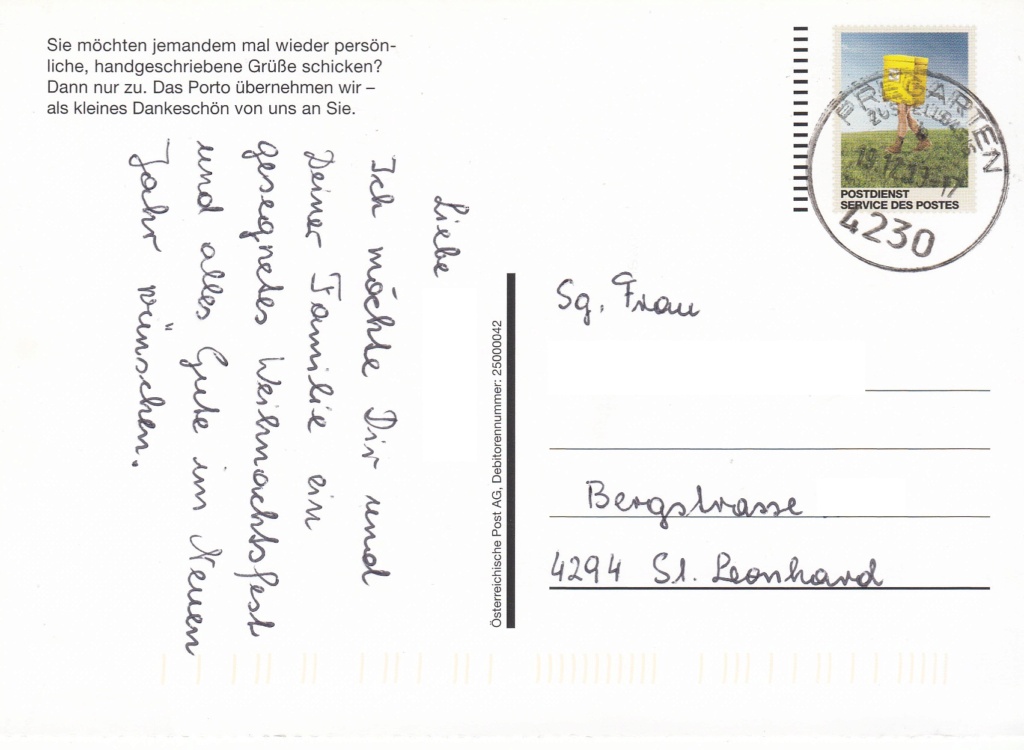 Sie möchten jemandem mal wieder persön-
liche, handgeschriebene Grüße schicken?
Dann nur zu. Das Porto übernehmen wir –
als kleines Dankeschön von uns an Sie.
Liebe
Ich möchte Dir und
Deiner Familie ein
gesegnetes Weihnachtsfest
und alles Gute im Neuen
Jahr wünschen.
Österreichische Post AG, Debitorennummer: 25000042
POSTDIENST
SERVICE DES POSTES
PREGARTEN
4230
Sg. Frau
Bergstrasse
4294 St. Leonhard